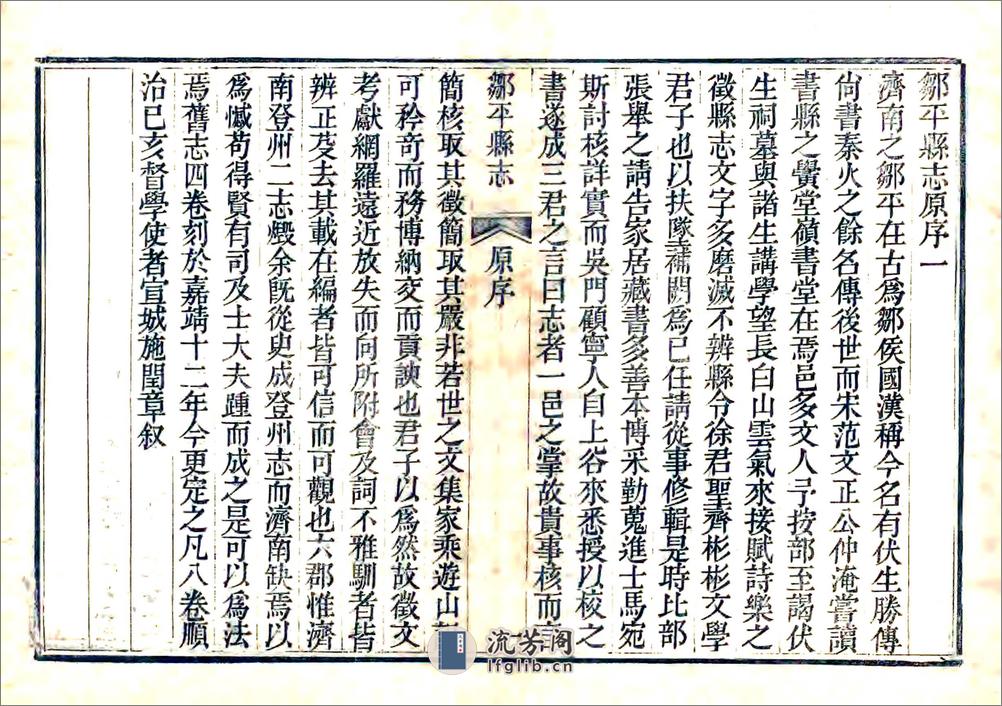 鄒平縣志原序一
濟南之鄒平在古爲鄒侯國漢稱今名有伏生勝傳
尙書秦火之餘名傳後世而宋范文正公仲淹嘗讀
書縣之黌堂嶺書堂在焉邑多文人予按部至謁伏
生祠墓與諸生講學望長白山雲氣來接賦詩樂之
徵縣志文字多磨滅不辨縣令徐君聖齊彬彬文學
君子也以扶隊補闕爲己任請從事修輯是時比部
張舉之請告家居藏書多善本博采勤蒐進士馬宛
斯討核詳實而吳門顧寧人自上谷來悉授以校之
書遂成三君之言曰志者一邑之掌故貴事核而
鄒平縣志 原序
簡核取其徵簡取其嚴非若世之文集家乘遊山
可矜竒而務博納交而貢諛也君子以爲然故徵文
考獻網羅遠近放失而向所附會及詞不雅馴者皆
辨正芟去其載在編者皆可信而可觀也六郡惟濟
南登州二志燬余旣從史成登州志而濟南缺焉以
爲憾苟得賢有司及士大夫踵而成之是可以爲法
焉舊志四卷刻於嘉靖十二年今更定之凡八卷順
治已亥督學使者宣城施閏章叙
流芳阁
lfglib.cn